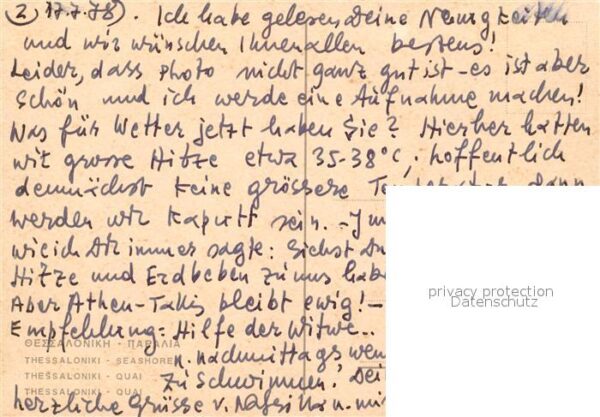 2) 17.7.78). Ich habe gelesen Deine Neuigkeiten
und wir wünschen Ihnen allen bestens!
Leider, dass Photo nicht ganz gut ist - es ist aber
schön und ich werde eine Aufnahme machen!
Was für Wetter jetzt haben Sie? Hierher hatten
wir grosse Hitze etwa 35-38°C, hoffentlich
demnächst keine grössere dann
werden wir kaputt sein. -
wie ich immer sagte: Siehst Du
Hitze und Erdbeben zu uns
Aber Athen - bleibt ewig! -
privacy protection
Datenschutz
Empfehlung: Hilfe der Witwe..
ΘΕΣΣΑΛΟΝΙΚΗ - ΠΑΡΑΛΙΑ
THESSALONIKI - SEASHORE
n. nachmittags
THESSALONIKI - QUAI
zu schwimmen.
THESSALONIKI - QUAI
herzliche Grüsse v.